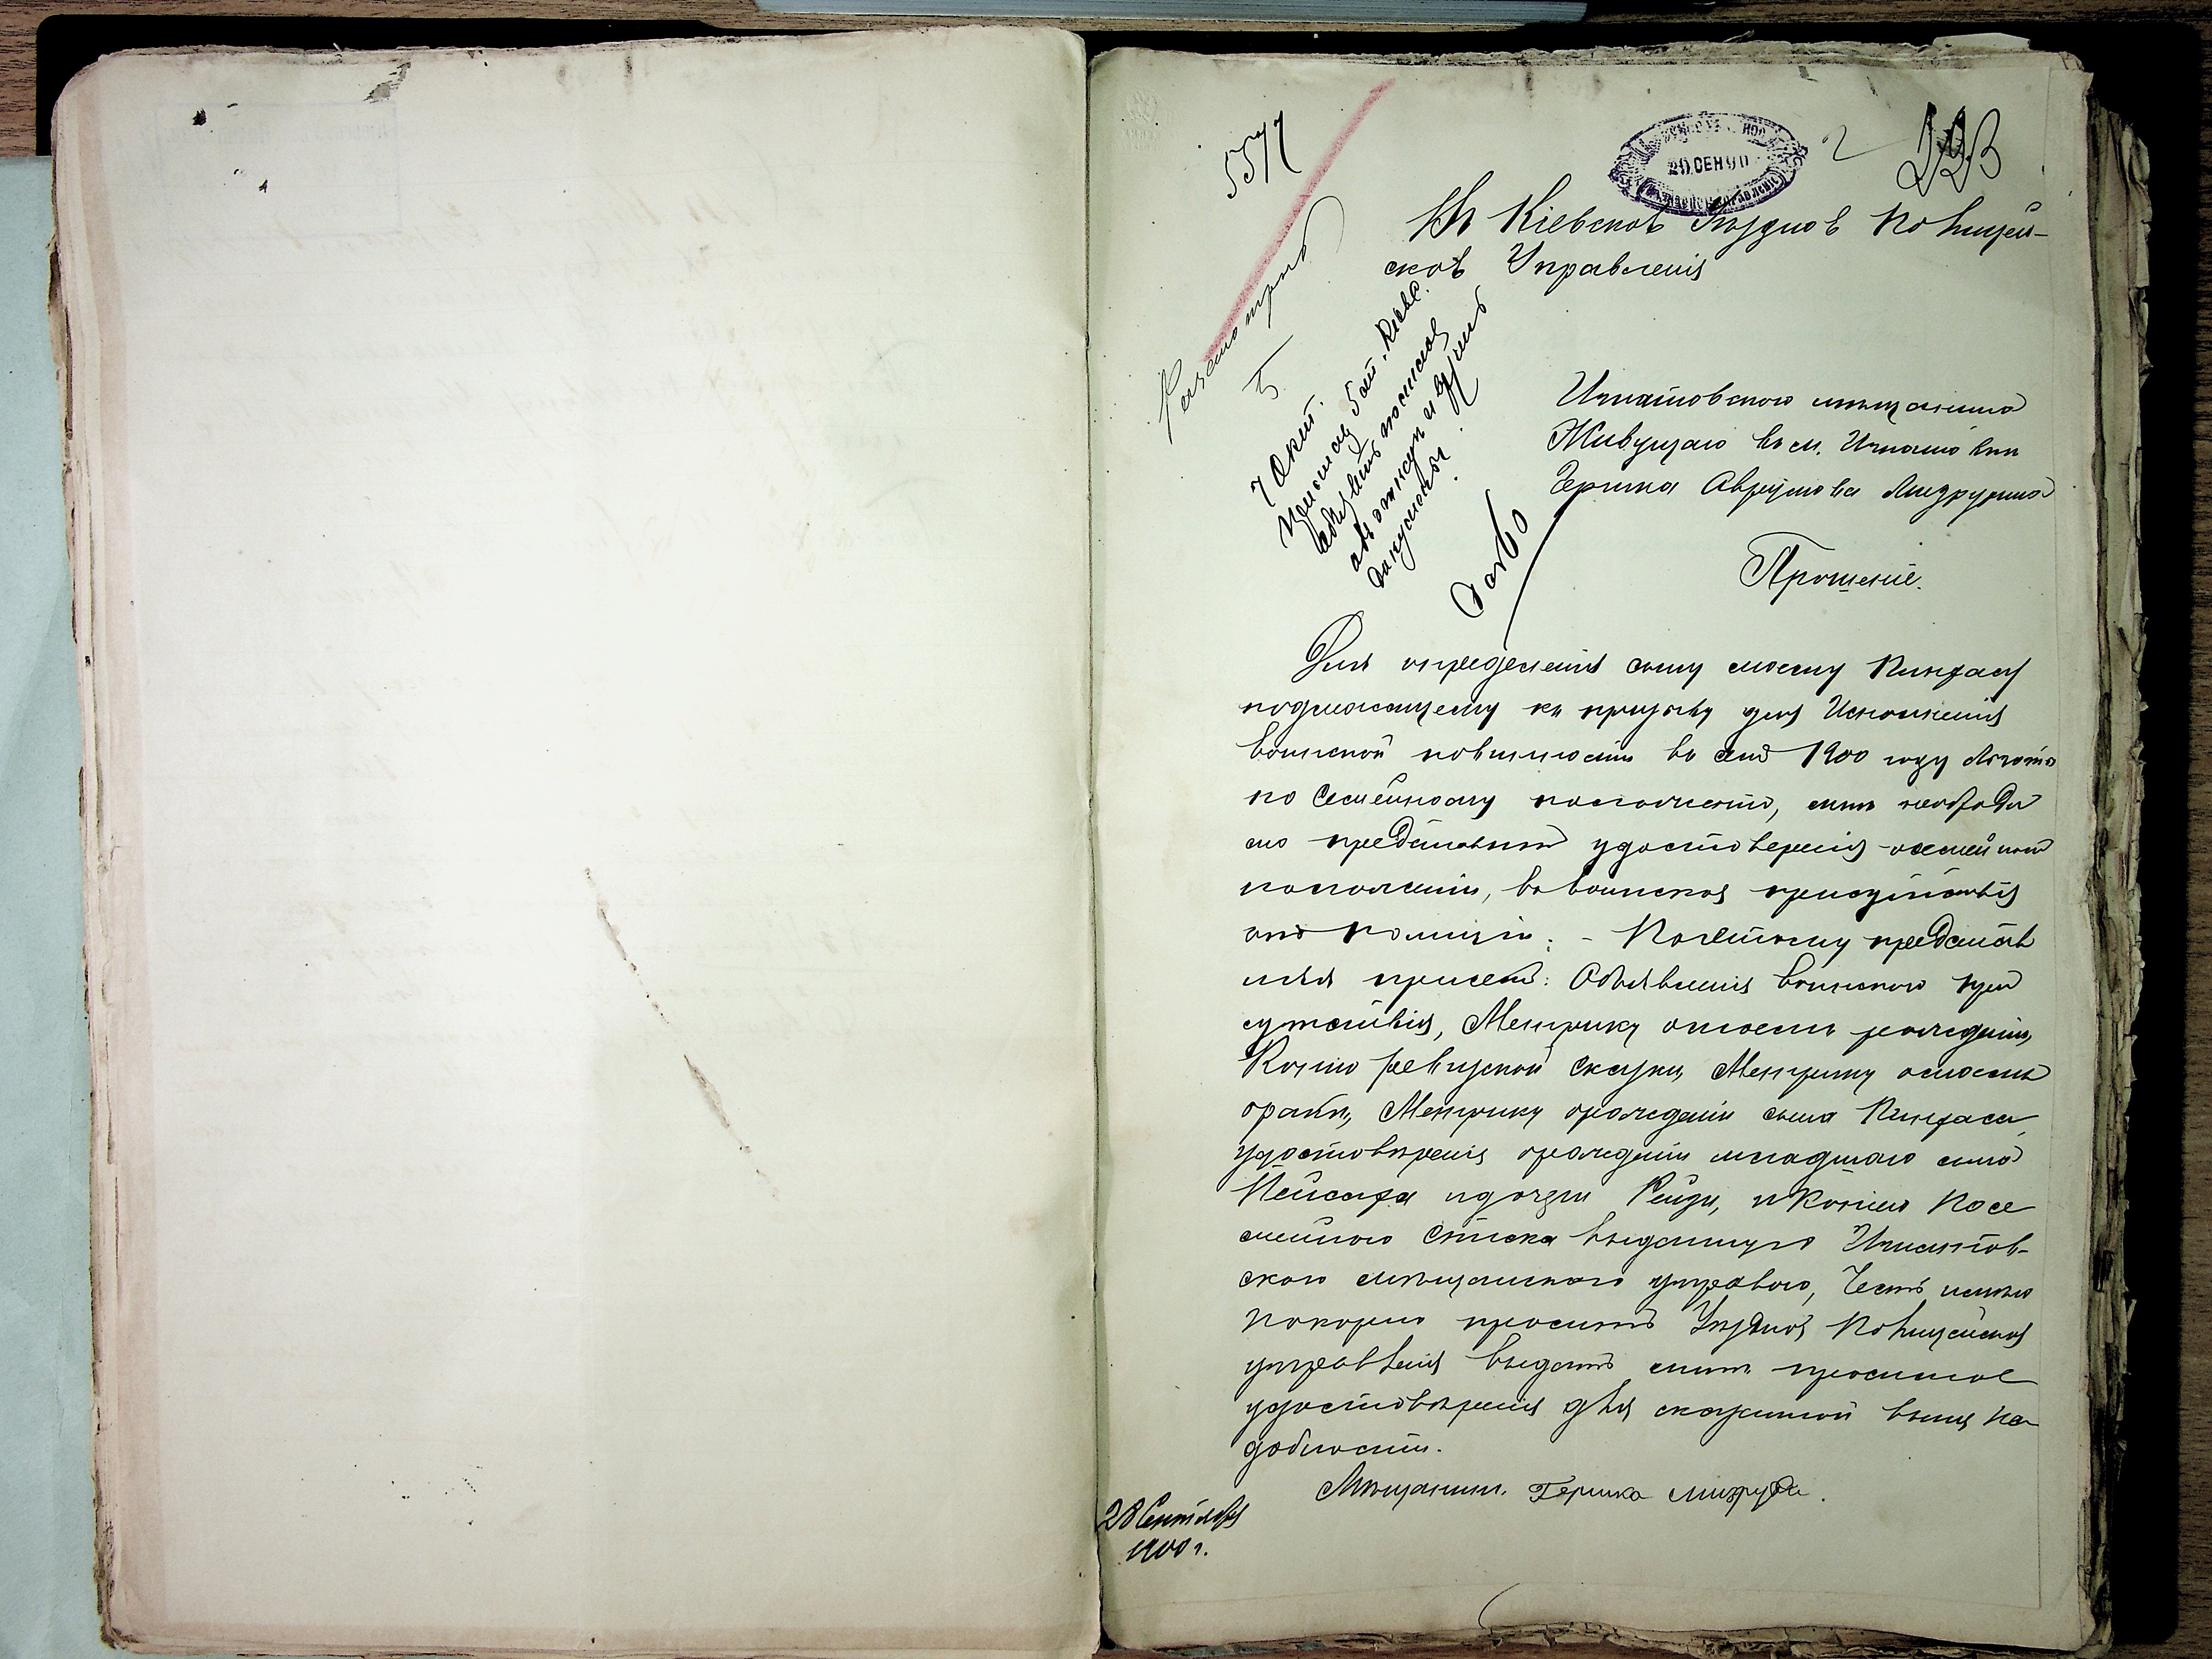 5571
20 СЕН 90
2
123
Въ Кіевское Уѣздное Полицей-
ское Управленія
Разсмотрѣно
7 Окт.
Игнатовского мѣщанина
Живущаго въ м. Игнатовки
Гершка Аврумова Мидрупина
Прошеніе.
Для опредѣленія сыну моему Пинхасу
подлежащему къ призыву для Исполненія
воинской повинности въ семъ 1900 году льготы
по Семейному положенію, мнѣ необходи
мо представить удостовѣренія осемейномъ
положеніи, въ воинское присутствія
отъ полиціи. - Поэтому представ
ляя присемъ: Объявленія воинского при
сутствія, Метрику омоемъ рожденіи,
Копію ревизской сказки, Метрику омоемъ
бракѣ, Метрику орожденіи сына Пинхаса,
удостовѣренія орожденіи младшаго сына
Пейсаха идочери Рейзи, и Копію Посе
мейного Списка выданную Игнатов-
ского мѣщанского управою, Честь имѣю
покорно просить Уѣздное Полицейское
управленія выдать мнѣ просимое
удостовѣренія для сказанной выше на
добности.
Мѣщанинъ Гершко
28 Сентября
1900 г.